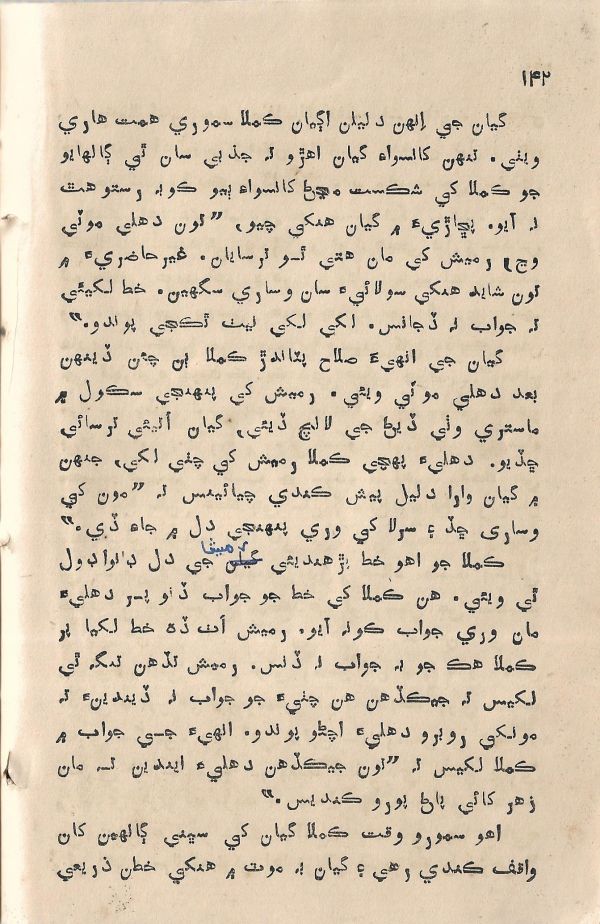 ۱۴۲
گيان جي انهن دليلن اڳيان ڪملا سموري همت هاري
ويٺي. تنهن کانسواءِ گيان اهڙو تہ جذبي سان ٿي ڳالهايو
جو ڪملا کي شڪست مڃڻ کانسواءِ ٻيو ڪوبہ رستو هٿ
نہ آيو. پڇاڙيءَ ۾ گيان هنکي چيو، ”تون دهلي موٽي
وڃ، رميش کي مان هتي ٿو ترسايان. غير حاضريءَ ۾
تون شايد هنکي سولائيءَ سان وساري سگهين. خط لکيئي
تہ جواب نہ ڏجانس. لکي لکي نيٺ ٿڪجي پوندو.“
گيان جي انهيءَ صلاح پٽاندڙ ڪملا ٻن چئن ڏينهن
بعد دهلي موٽي ويئي. رميش کي پنهنجي سڪول ۾
ماستري وٺي ڏيڻ جي لالچ ڏيئي، گيان اُتيئي ترسائي
ڇڏيو. دهليءَ پهچي ڪملا رميش کي چٺي لکي، جنهن
۾ گيان وارا دليل پيش ڪندي چيائينس تہ ”مون کي
وساري ڇڏ ۽ سرلا کي وري پنهنجي دل ۾ جاءِ ڏي.“
ڪملا جو اهو خط پڙهنديئي رميش جي دل ڊانواڊول
ٿي ويئي. هن ڪملا کي خط جو جواب ڏنو پر دهليءَ
مان وري جواب ڪونہ آيو. رميش اَٺ ڏهَ خط لکيا پر
ڪملا هڪ جو بہ جواب نہ ڏنس. رميش تڏهن تنگ ٿي
لکيس تہ جيڪڏهن هن چٺيءَ جو جواب نہ ڏيندينءَ تہ
مونکي روبرو دهليءَ اچڻو پوندو. انهيءَ جي جواب ۾
ڪملا لکيس تہ ”تون جيڪڏهن دهليءَ ايندين تہ مان
زهر کائي پاڻ پورو ڪنديس.“
اهو سمورو وقت ڪملا گيان کي سڀني ڳالهين کان
واقف ڪندي رهي ۽ گيان بہ موٽ ۾ هنکي خطن ذريعي